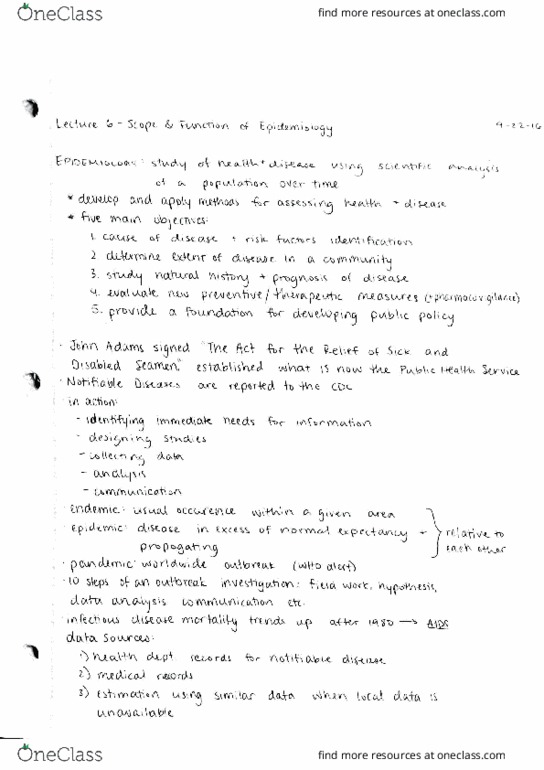 OneClass
find more resources at oneclass.com
Lecture 6 - Scope & Function of Epidemiology 9-22-16
EPIDEMIOLOGY: study of health + disease using scientific analysis
of a population over time
* develop and apply methods for assessing health + disease
* five main objectives:
1. cause of disease + risk factors identification
2 determine extent of disease in a community
3. study natural history + prognosis of disease
4. evaluate new preventive/therapeutic measures
5. provide a foundation for developing public policy
· John Adams signed "The Act for the Relief of Sick and
Disabled Seamen" established what is now the Public Health Service
· Notifiable Diseases are reported to the CDC
· in action:
- identifying immediate needs for information
- designing studies
- collecting data
- analysis
- communication
· Endemic: usual occurence within a given area
· Epidemic: disease in excess of normal expectancy + relative to
propogating each other
· pandemic: worldwide outbreak (WHO alert)
· 10 steps of an outbreak investigation: field work, hypothesis,
data analysis communication etc.
· infectious disease mortality trends up after 1980 → AIDS
data sources:
1) health dept. records for notifiable disease
2) medical records
3) Estimation using similar data when local data is
unavailable
OneClass
find more resources at oneclass.com